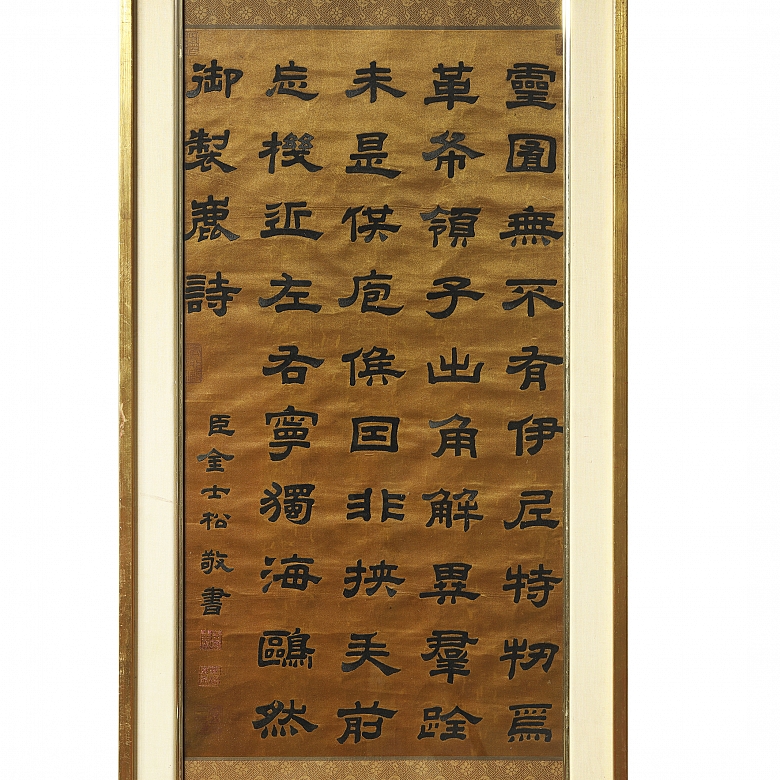 靈囿無不有伊尼特牣爲
革希領子出角解異羣跧
未是供庖俟因非挾矢前
忘機近左右寧獨海鷗然
御製鹿詩
臣金士松敬書